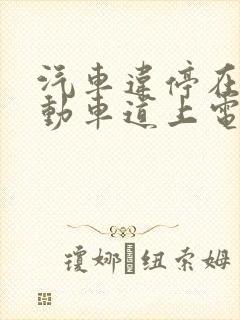 汽車違停在
動車道上電
瓊娜 紐索姆
HANDSOME